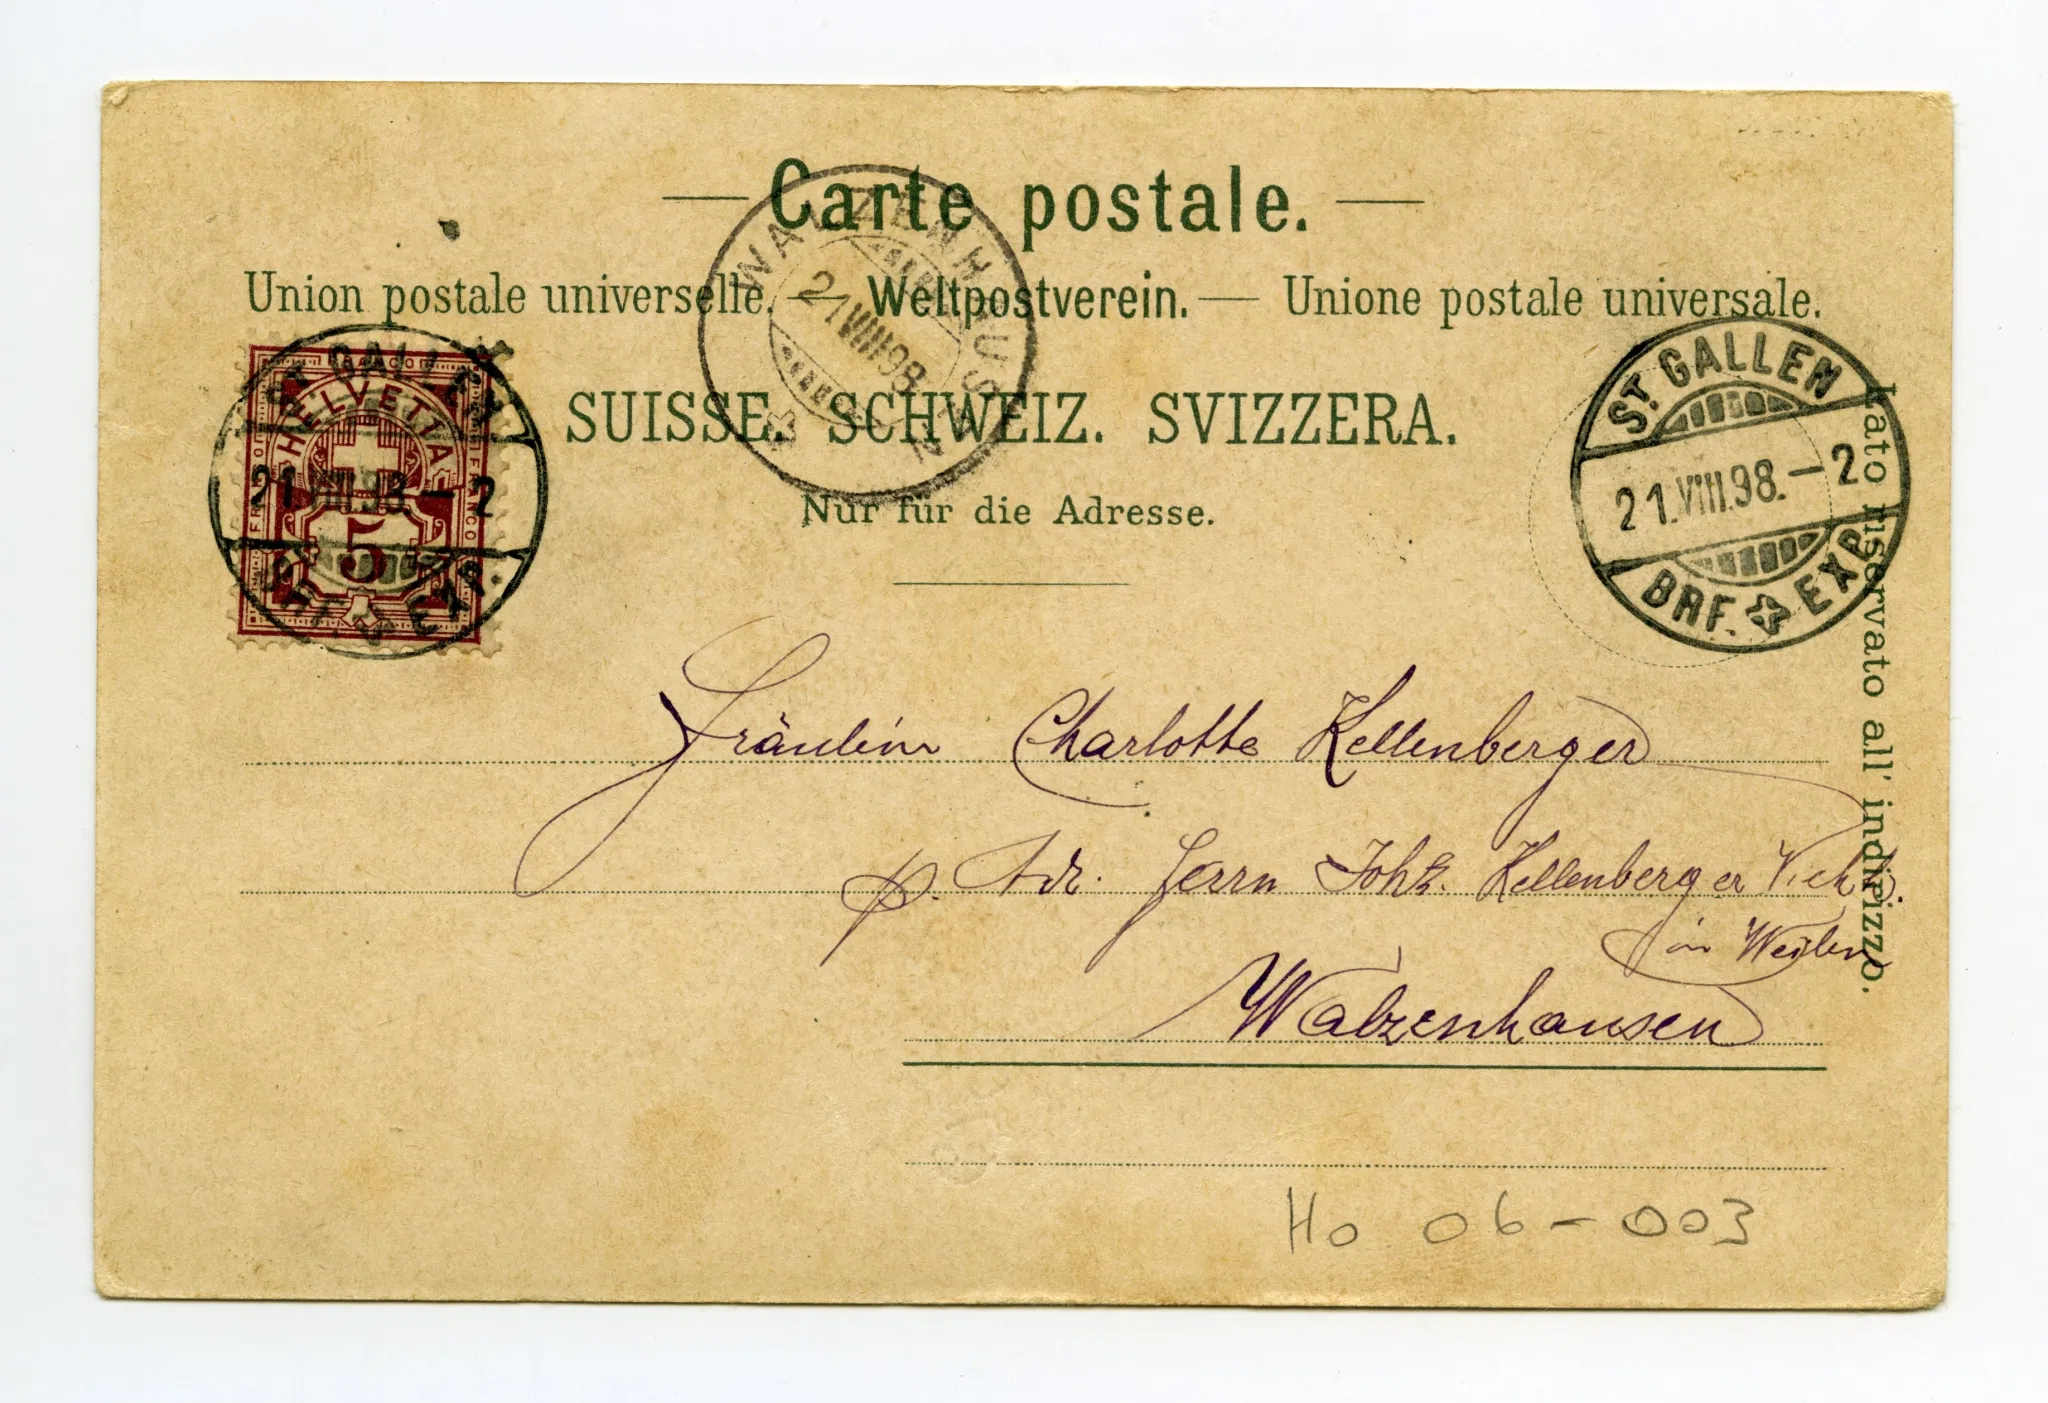 Carte postale.
Union postale universelle. — Weltpostverein. — Unione postale universale.
SUISSE. SCHWEIZ. SVIZZERA.
Nur für die Adresse.
WALZENHAUSEN
21 VIII 98
FRANCO
HELVETIA
FRANCO
FRANCO
5
ST. GALLEN
21.VIII.98.–2
BRF. EXP.
ST. GALLEN
21.VIII.98.–2
BRF. EXP.
Lato riservato all' indirizzo.
Fräulein Charlotte Kellenberger
p. Adr. Herrn Johs. Kellenberger
in
Walzenhausen
Ho 06-003